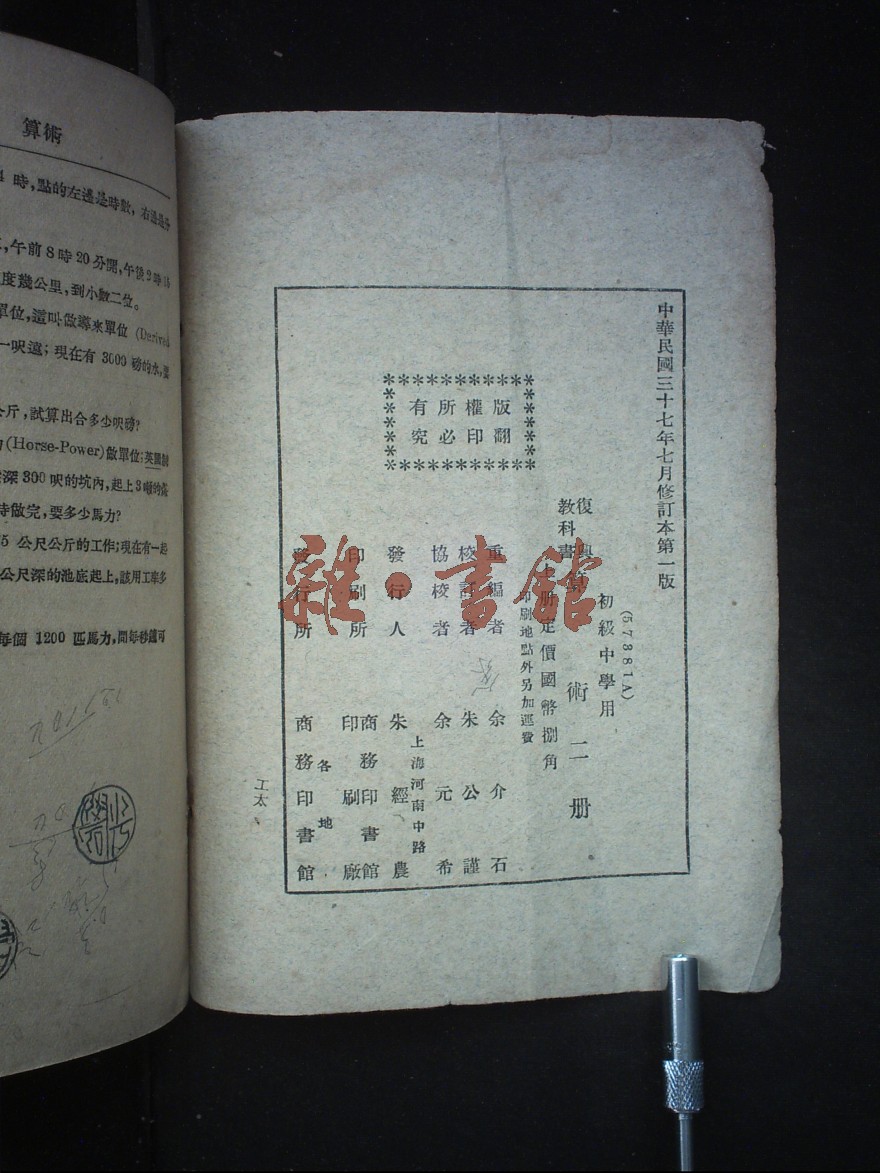 中華民國三十七年七月修訂本第一版
(57881A)
初級中學用
復興
教科書
算術二册
册定價國幣捌角
印刷地點外另加運費
版權所有
翻印必究
重編者 余介石
校訂者 朱公謹
協校者 余元希
發行人 朱經農
上海河南中路
印刷所 商務印書館
印刷廠
發行所 各地
商務印書館
工太
雜·書館
算術
時,點的左邊是時數,右邊是分
午前8時20分開,午後2時15
度幾公里,到小數二位。
單位,這叫做導來單位 (Derived
一呎遠;現在有 3000 磅的水,
公斤,試算出合多少呎磅?
(Horse-Power)做單位;英國制
深 300 呎的坑內,起上3噸的
時做完,要多少馬力?
5 公尺公斤的工作;現在有一起
公尺深的池底起上,該用工率多
每個 1200 匹馬力,問每秒鐘可